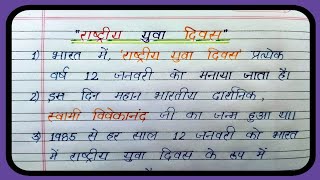 "राष्ट्रीय युवा दिवस"
1) भारत में, 'राष्ट्रीय युवा दिवस' प्रत्येक
वर्ष 12 जनवरी को मनाया जाता है।
2) इस दिन महान भारतीय दार्शनिक,
स्वामी विवेकानंद जी का जन्म हुआ था।
3) 1985 से हर साल 12 जनवरी को भारत
में राष्ट्रीय युवा दिवस के रूप में